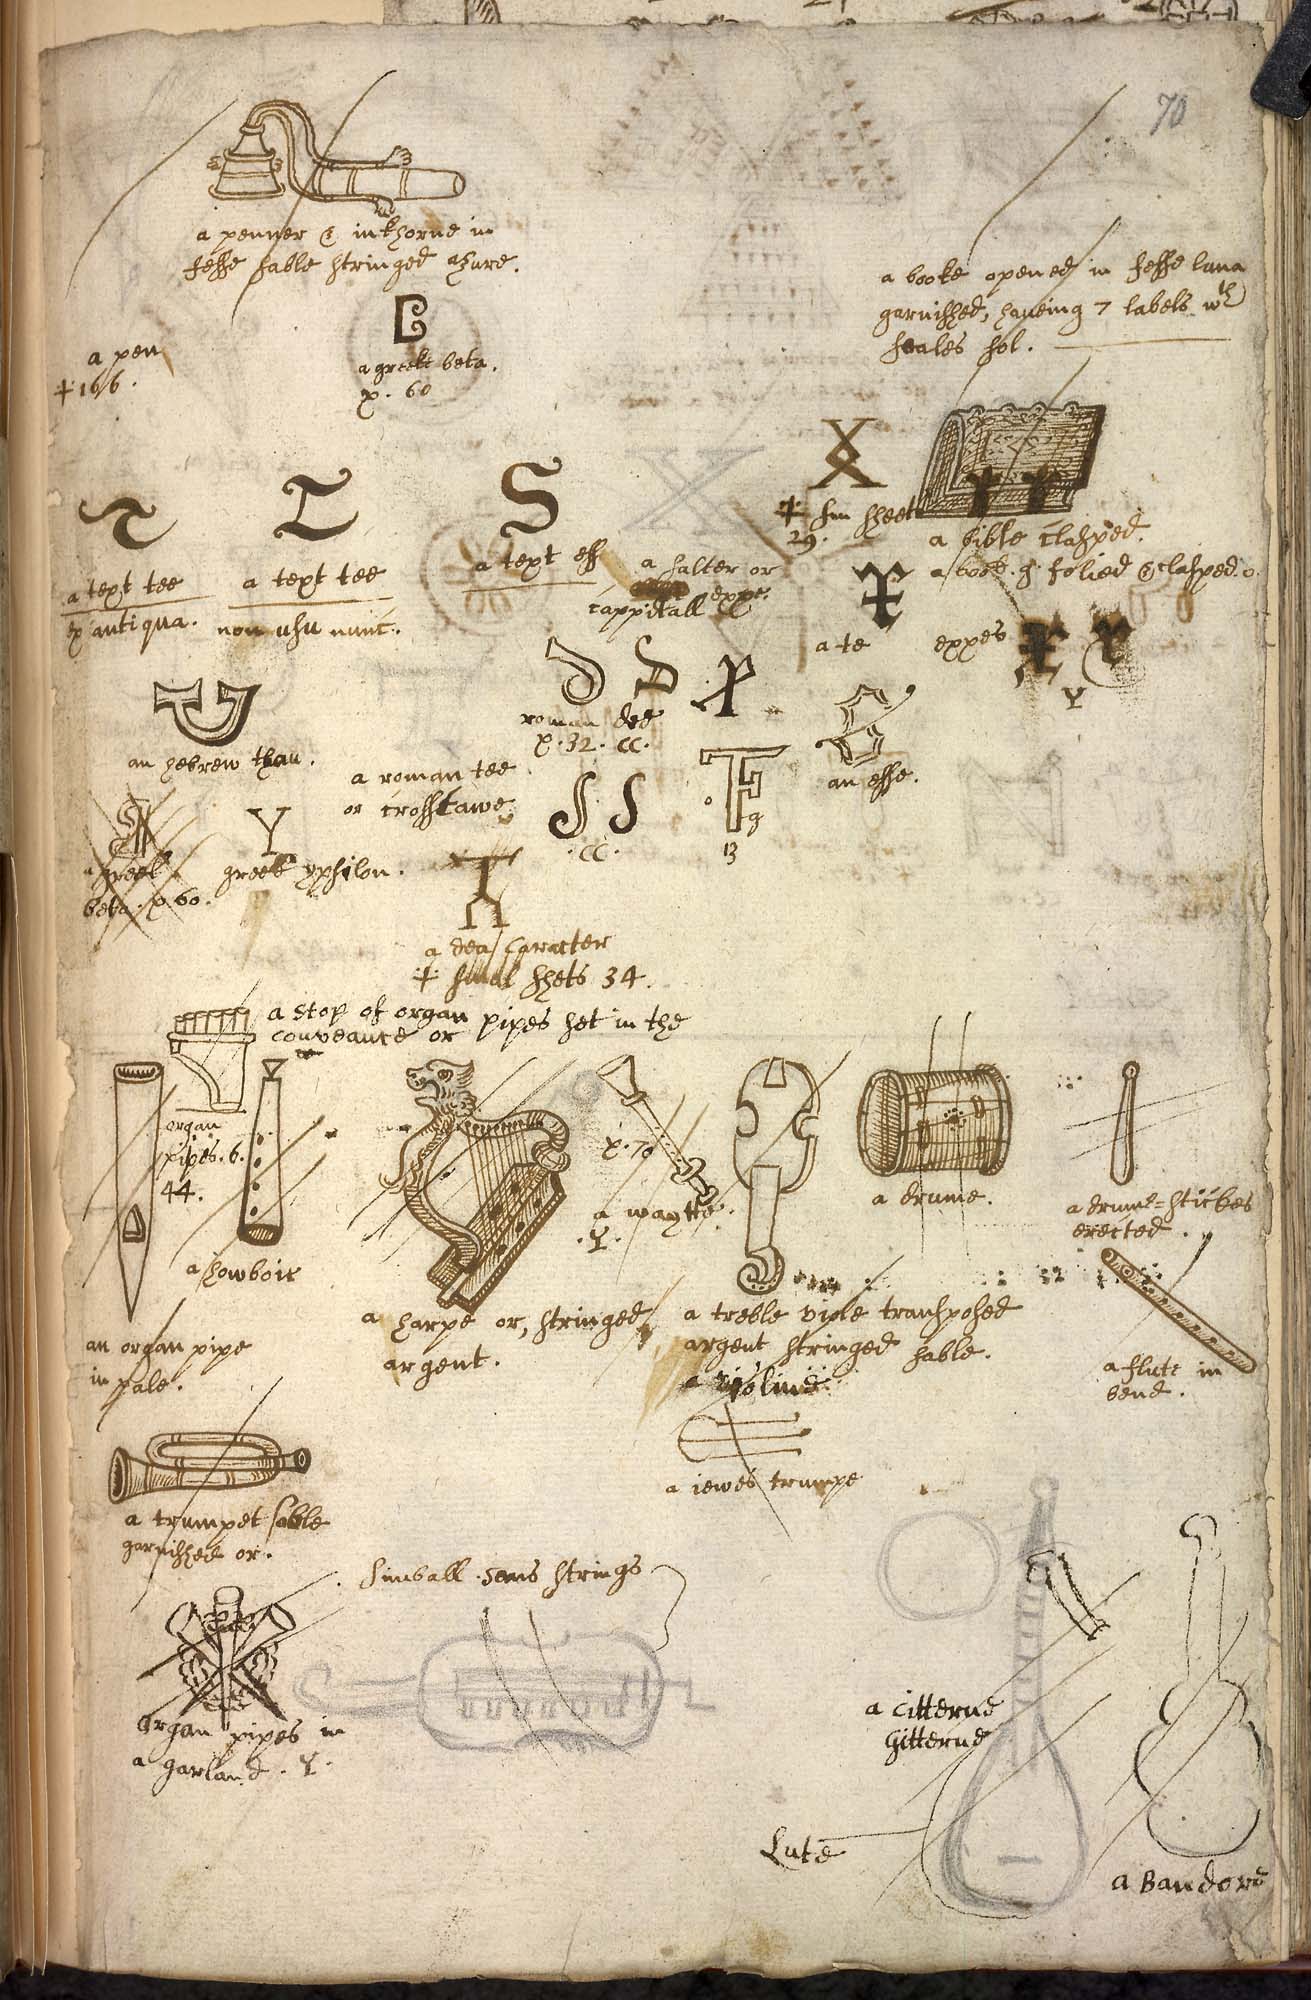 70
a penner & inkhorne in
fesse sable stringed azure.
a booke opened in fesse luna
garnisshed, haveing 7 labels wth
seales sol.
a pen
166.
B
a greeke beta.
p. 60
a text tee
ex antiqua.
T
a text tee
non usu nunc.
S
a text ess
X
a salter or
cappitall exxe.
sheet
29.
a bible clasped.
a booke folied & clasped. o
a te
exxes
an hebrew thau.
roman dee
p. 32. CC.
an esse.
a roman tee
or crosse tawe
S S
.CC.
F
13
a greek
beta. p. 60.
Y
greek ypsilon.
a dea caracter
smal shets 34.
a stop of organ pipes set in the
conveance or
organ
pipes. 6.
44.
a howboie
an organ pipe
in pale.
a harpe or, stringed
argent.
p. 70
a waytte.
.Y.
a treble viole transposed
argent stringed sable.
a violine
a drume.
a drume-stickes
erected.
a flute in
bend.
a jewes trumpe
a trumpet sable
garnisshed or.
simball. sans strings
organ pipes in
a garland. Y.
a citterne
gitterne
Lute
a Bandore